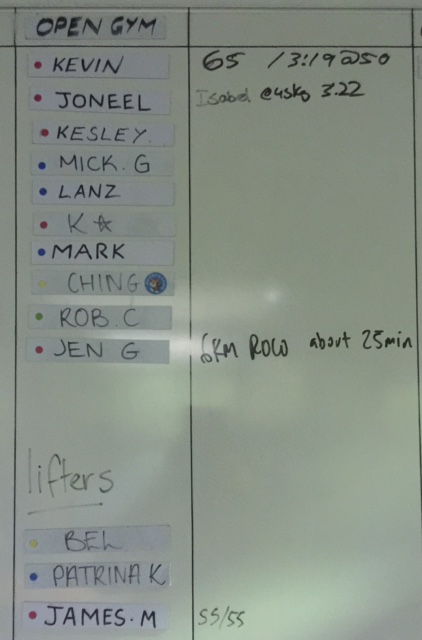 OPEN GYM
KEVIN 65 13:19@50
JONEEL Isabel @45kg 3.22
KESLEY.
MICK. G
LANZ
K☆
MARK
CHING
ROB. C
JEN G 6KM ROW about 25min
lifters
BEL
PATRINA K
JAMES. M 55/55